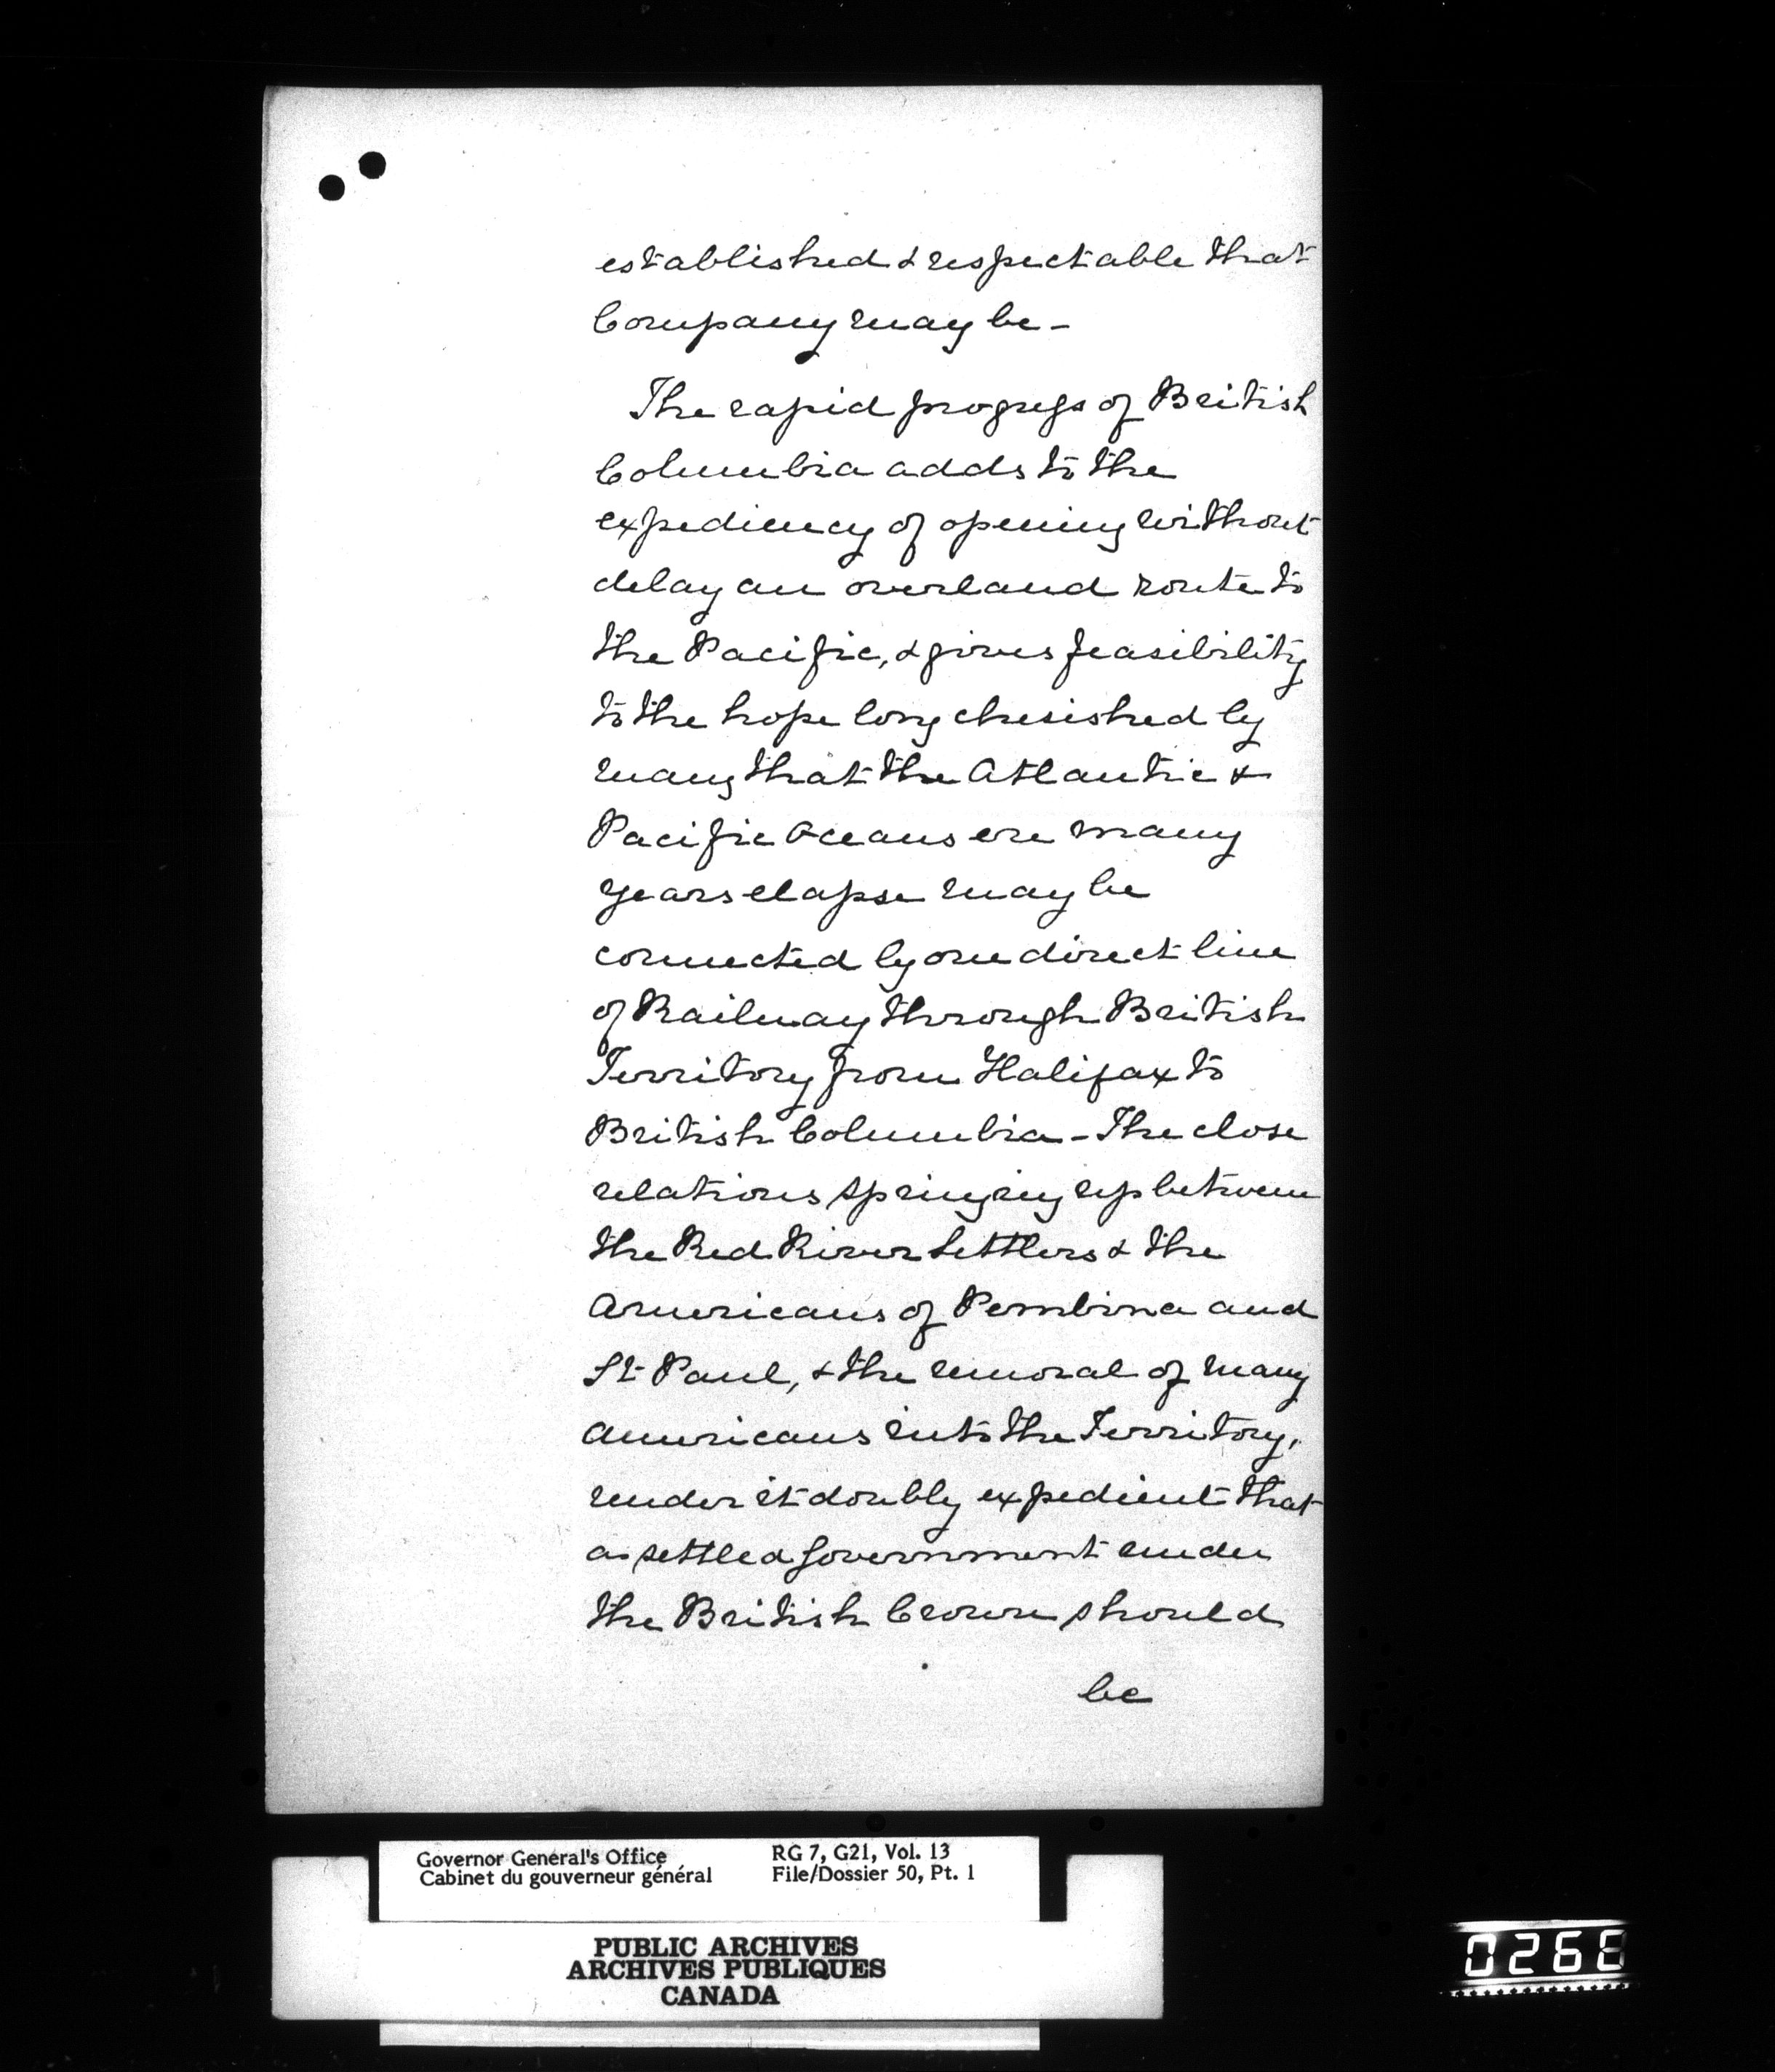 established & respectable that
Company may be -
The rapid progress of British
Columbia adds to the
expediency of opening without
delay an overland route to
the Pacific, & gives feasibility
to the hope long cherished by
many that the Atlantic &
Pacific Oceans ere many
years elapse may be
connected by one direct line
of Railway through British
Territory from Halifax to
British Columbia - The close
relations springing up between
the Red River Settlers & the
Americans of Pembina and
St Paul, & the removal of many
Americans into the Territory,
render it doubly expedient that
a settled Government under
the British Crown should
be
Governor General's Office RG 7, G21, Vol. 13
Cabinet du gouverneur général File/Dossier 50, Pt. 1
PUBLIC ARCHIVES
ARCHIVES PUBLIQUES
CANADA